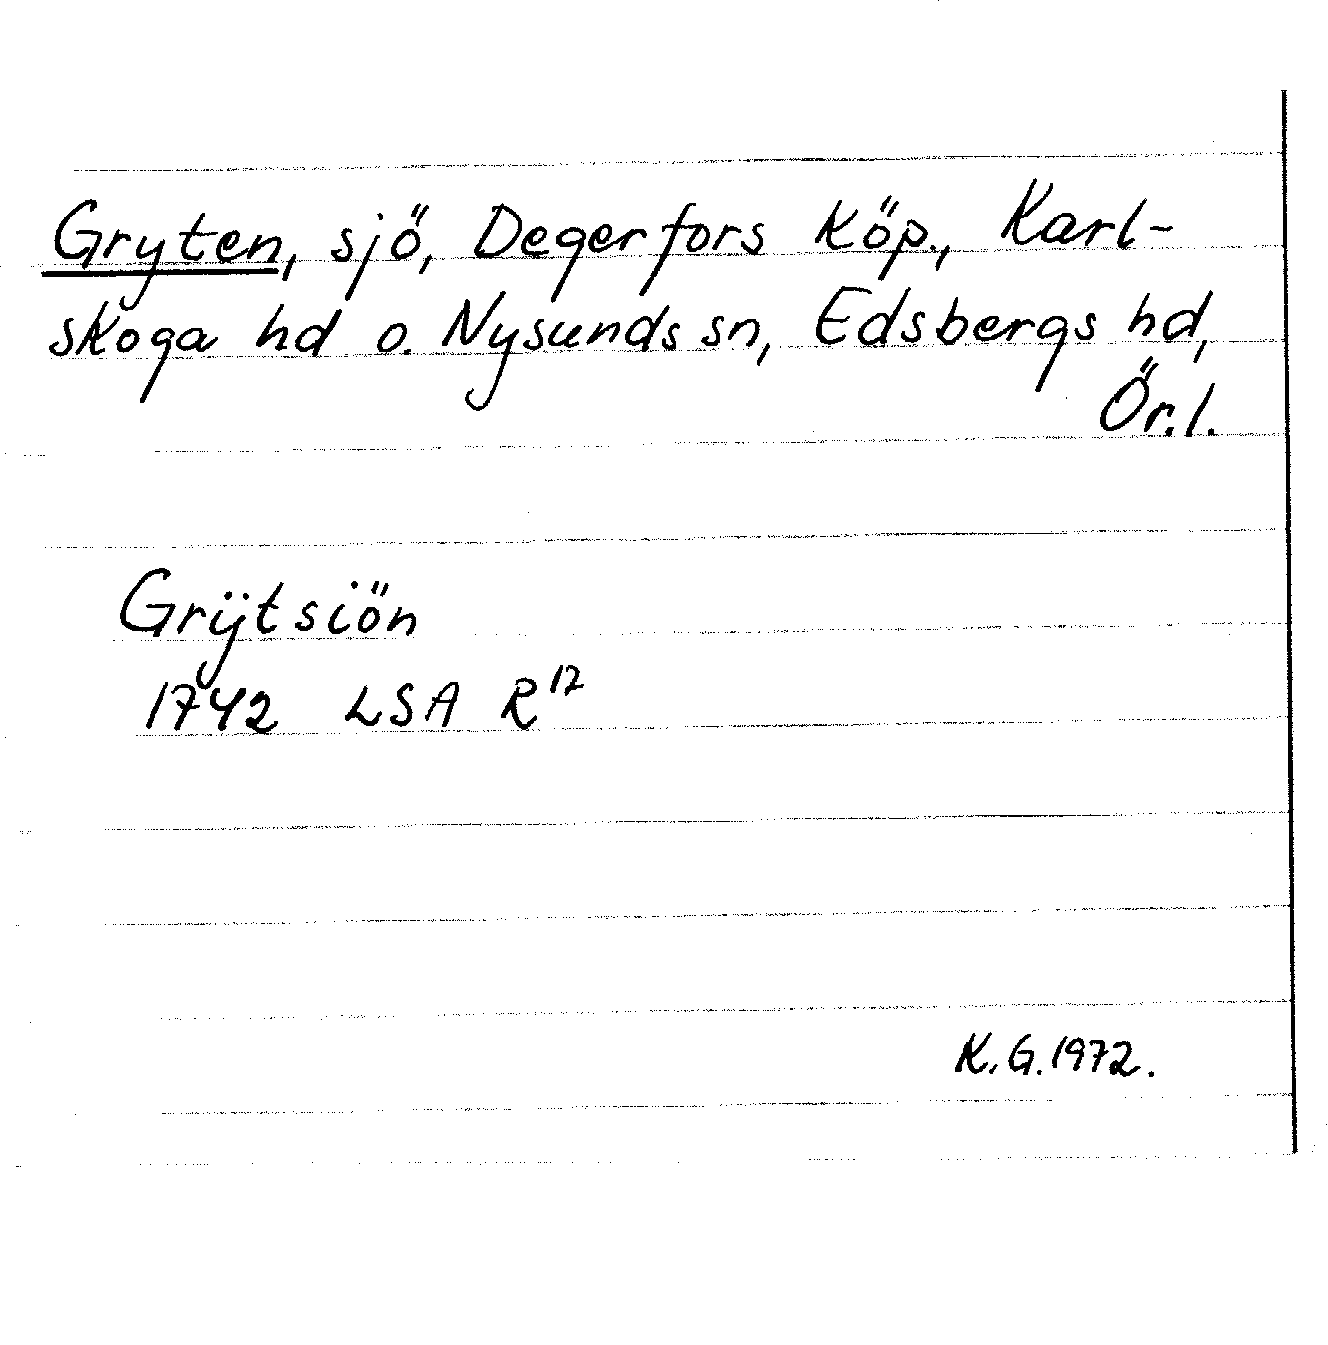 Gryten, sjö, Degerfors köp., Karl-
skoga hd o. Nysunds sn, Edsbergs hd,
Ör.l.
Grÿtsiön
1742 LSA R¹⁷
K.G.1972.